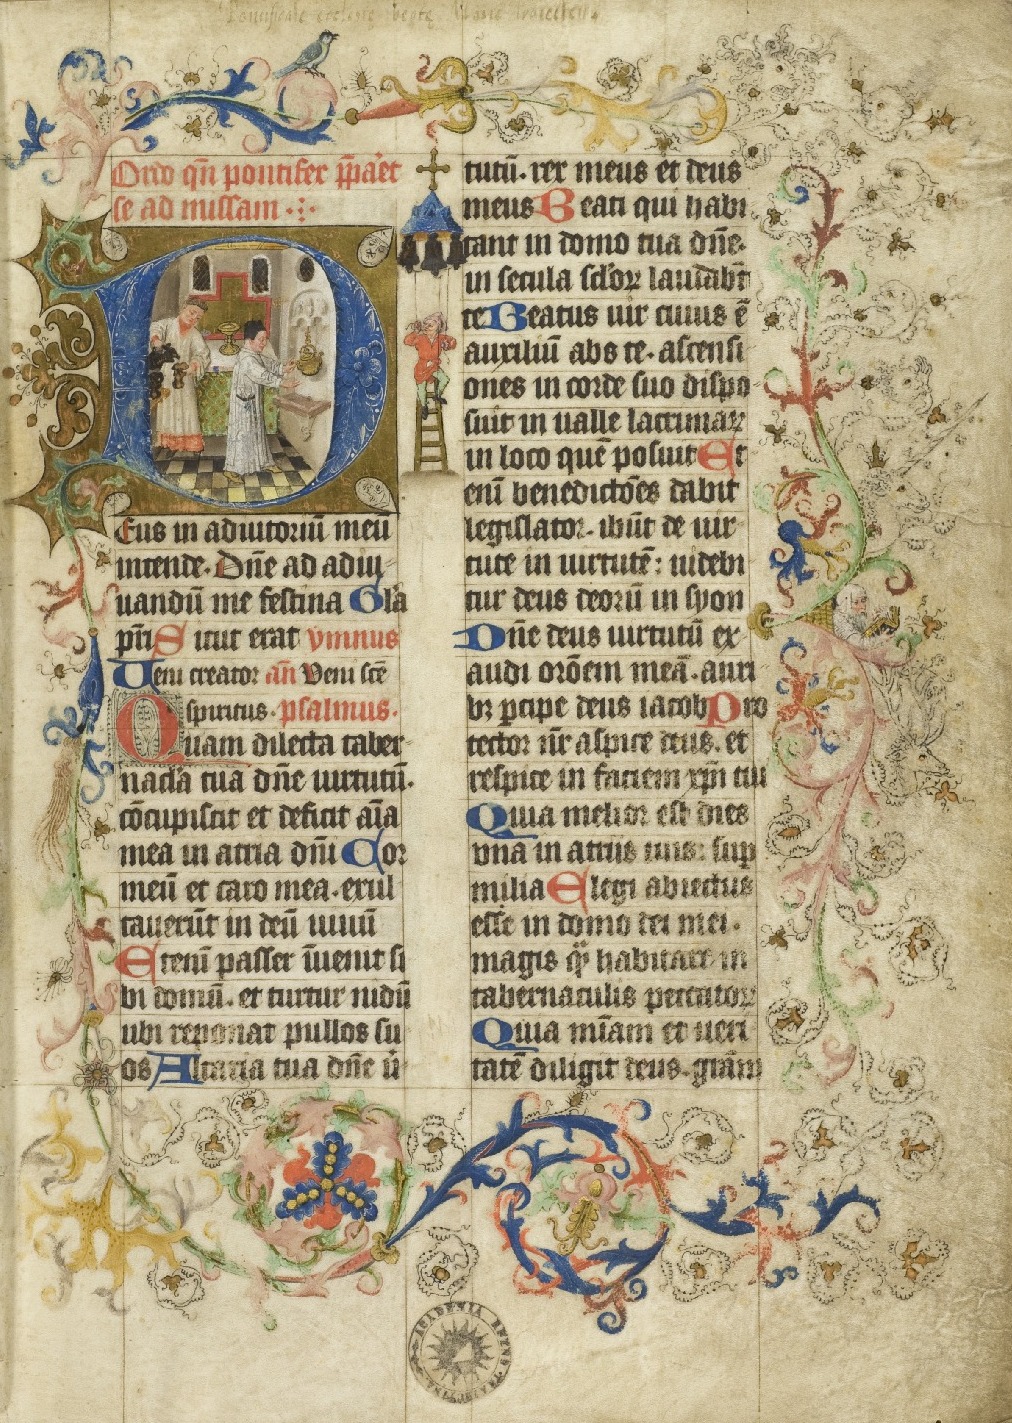 Pontificale ecclesie beate Marie Traiecten.
Ordo qn̄ pontifex p̄paret
se ad missam
Deus in adiutoriū meū
intende. Dn̄e ad adiu
uandū me festina Gl̄a
pr̄i Sicut erat ymnus
Ueni creator an̄ Veni sc̄e
spiritus. psalmus.
Quam dilecta taber
nacl̄a tua dn̄e uirtutū.
cōcupiscit et deficit aīa
mea in atria dn̄i Cor
meū et caro mea. exul
tauerūt in deū uiuū
Etenī passer īuenit si
bi domū. et turtur nidū
ubi reponat pullos su
os Altaria tua dn̄e ū
tutū. rex meus et deus
meus Beati qui habi
tant in domo tua dn̄e.
in secula scl̄oꝝ laudabūt
te Beatus uir cuius ē
auxiliū abs te. ascensi
ones in corde suo dispo
suit in ualle lacrimaꝝ
in loco quē posuit Et
enī benedictōes dabit
legislator. ibūt de uir
tute in uirtutē: uidebi
tur deus deorū in syon
Dn̄e deus uirtutū ex
audi orōem meā. auri
bꝫ ꝑcipe deus iacob Pro
tector nr̄ aspice deus. et
respice in faciem xp̄i tui
Quia melior est dies
vna in atriis tuis: suꝑ
milia Elegi abiectus
esse in domo dei mei.
magis qͣ̄ habitare in
tabernaculis peccatoꝝ
Quia mīam et ueri
tatē diligit deus. grām
ACADEMIA RHENO-TRAIECTINA